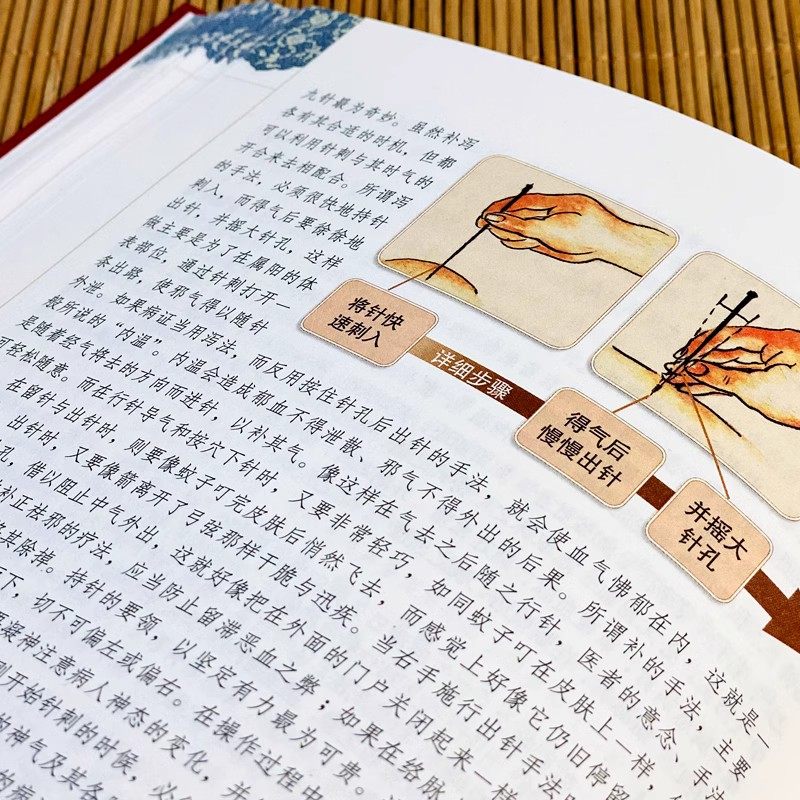 九针最为奇妙。虽然补泻
各有其合适的时机，但都
可以利用针刺与其时气的
开合来去相配合。所谓泻
的手法，必须很快地持针
刺入，而得气后要徐徐地
出针，并摇大针孔，这样
做主要是为了在属阳的体
表部位，通过针刺打开一
条出路，使邪气得以随针
外泄。如果病证当用泻法，而反用按住针孔后出针的手法，就会使血气怫郁在内，这就是一
般所说的“内温”。内温会造成郁血不得泄散、邪气不得外出的后果。所谓补的手法，主要
是随着经气将去的方向而进针，以补其气。像这样在气去之后随之行针，医者的意念、手法
可轻松随意。而在行针导气和按穴下针时，又要非常轻巧，如同蚊子叮在皮肤上一样，
在留针与出针时，则要像蚊子叮完皮肤后悄然飞去，而感觉上好像它仍旧停留
出针时，又要像箭离开了弓弦那样干脆与迅疾。当右手施行出针手法
孔，借以阻止中气外出，这就好像把在外面的门户关闭起来一样
补正祛邪的疗法，应当防止留滞恶血之弊；如果在络脉
其除掉。持针的要领，以坚定有力最为可贵。
下，切不可偏左或偏右。在操作过程中
凝神注意病人神态的变化，并
开始针刺的时候，必
的神气及其各
将针快
速刺入
详细步骤
得气后
慢慢出针
并摇大
针孔